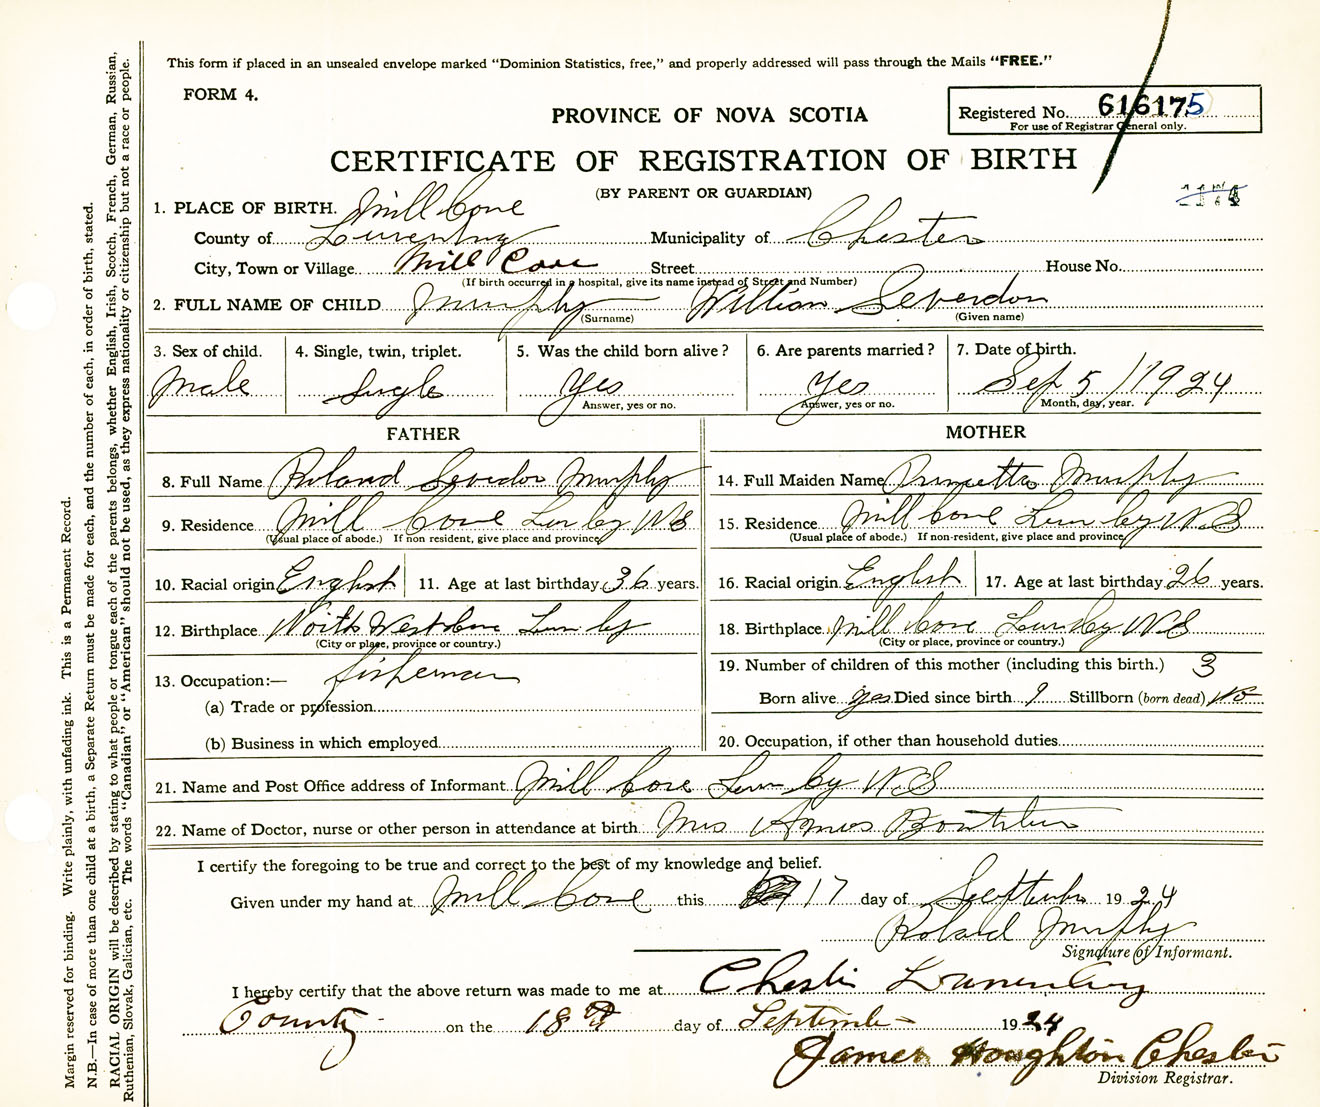 This form if placed in an unsealed envelope marked "Dominion Statistics, free," and properly addressed will pass through the Mails "FREE."
FORM 4.
Registered No. 616175
For use of Registrar General only.
PROVINCE OF NOVA SCOTIA
CERTIFICATE OF REGISTRATION OF BIRTH
(BY PARENT OR GUARDIAN)
1. PLACE OF BIRTH. Mill Cove
County of Lunenburg Municipality of Chester
City, Town or Village Mill Cove Street House No.
(If birth occurred in a hospital, give its name instead of Street and Number)
2. FULL NAME OF CHILD Murphy William Seberdon
(Surname) (Given name)
3. Sex of child. 4. Single, twin, triplet. 5. Was the child born alive? 6. Are parents married? 7. Date of birth.
Male Single Yes Yes Sep 5 / 1924
Answer, yes or no. Answer, yes or no. Month, day, year.
FATHER
8. Full Name Roland Murphy
9. Residence Mill Cove Lun by NS
(Usual place of abode.) If non resident, give place and province
10. Racial origin English 11. Age at last birthday 36 years.
12. Birthplace North West Cove Lun by
(City or place, province or country.)
13. Occupation:— fisherman
(a) Trade or profession
(b) Business in which employed
MOTHER
14. Full Maiden Name Murphy
15. Residence Mill Cove Lun by NS
(Usual place of abode.) If non-resident, give place and province
16. Racial origin English 17. Age at last birthday 26 years.
18. Birthplace Mill Cove Lun by NS
(City or place, province or country.)
19. Number of children of this mother (including this birth.) 3
Born alive yes Died since birth Stillborn (born dead) No
20. Occupation, if other than household duties
21. Name and Post Office address of Informant Mill Cove Lun by N.S
22. Name of Doctor, nurse or other person in attendance at birth Mrs Amos Boutilier
I certify the foregoing to be true and correct to the best of my knowledge and belief.
Given under my hand at Mill Cove this 17 day of September 1924
Roland Murphy
Signature of Informant.
I hereby certify that the above return was made to me at Chester Lunenburg
County on the 18 day of September 1924
James Houghton Chester
Division Registrar.
Margin reserved for binding. Write plainly, with unfading ink. This is a Permanent Record.
N.B.—In case of more than one child at a birth, a Separate Return must be made for each, and the number of each, in order of birth, stated.
RACIAL ORIGIN will be described by stating to what people or tongue each of the parents belongs, whether English, Irish, Scotch, French, German, Russian,
Ruthenian, Slovak, Galician, etc. The words "Canadian" or "American" should not be used, as they express nationality or citizenship but not a race or people.